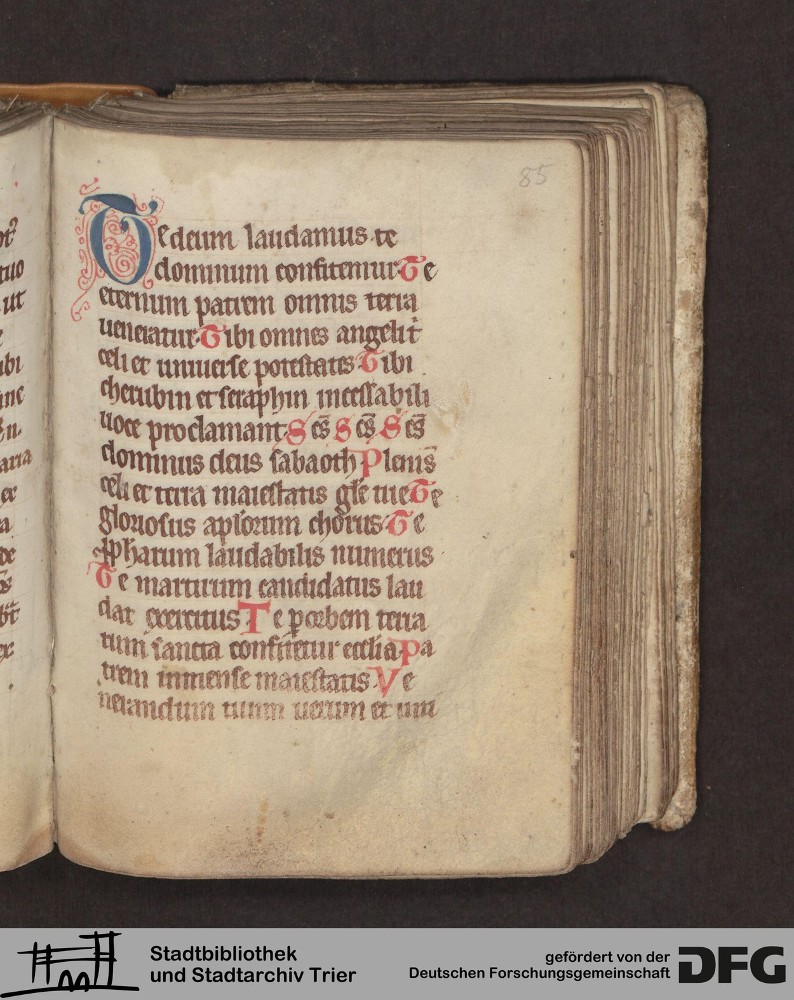 85
Te deum laudamus te
dominum confitemur Te
eternum patrem omnis terra
ueneratur Tibi omnes angeli t̄
celi et uniuerse potestates Tibi
cherubin et seraphin incessabili
uoce proclamant Sc̄s Sc̄s Sc̄s
dominus deus sabaoth Pleni s̄
celi et terra maiestatis gl̄e tue Te
gloriosus apl̄orum chorus Te
ꝓpharum laudabilis numerus
Te martirum candidatus lau
dat exercitus Te ꝑ orbem terra
rum sancta confitetur eccl̄ia Pa
trem inmense maiestatis Ve
nerandum tuum uerum et uni
Stadtbibliothek
und Stadtarchiv Trier
gefördert von der
Deutschen Forschungsgemeinschaft
DFG